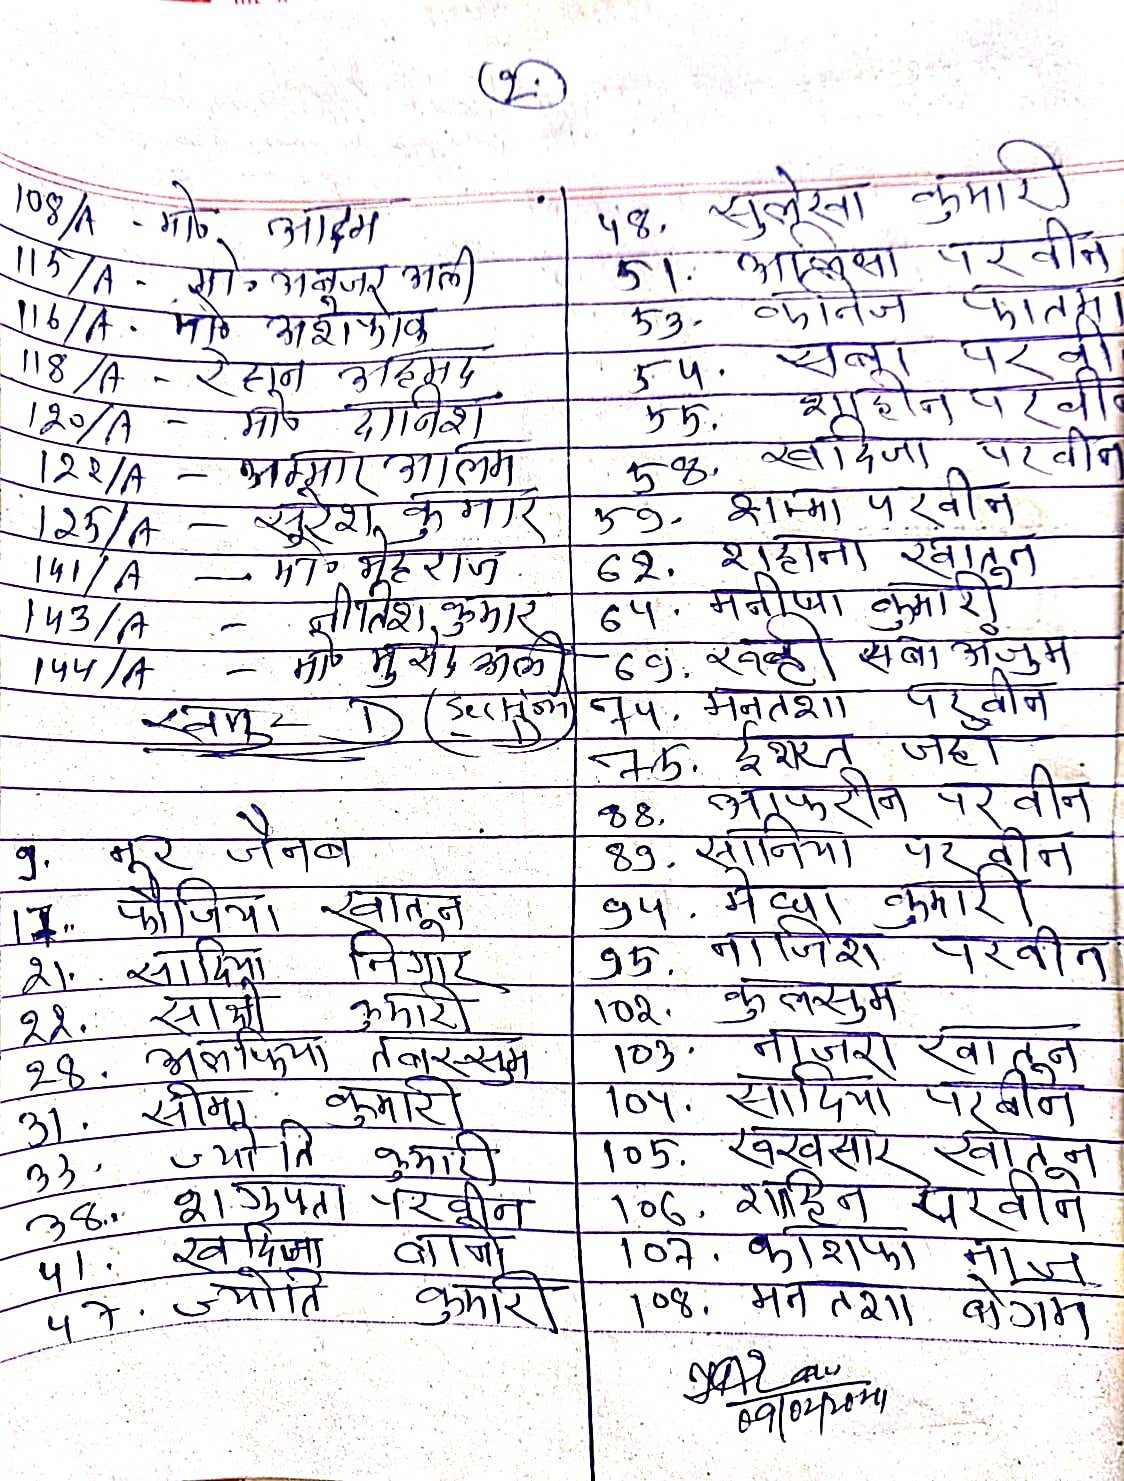 2.
108/A - मो० आदम
115/A - मो० अबुजर अली
116/A - मो० अशफाक
118/A - रेहान अहमद
120/A - मो० दानिश
122/A - अम्मार आलम
125/A - सुरेश कुमार
141/A - मो० मेहराज
143/A - नीतिश कुमार
144/A - मो० मुर्सद अली
D
9. नूर जैनब
17. फौजिया खातून
21. सादिया निगार
22. साक्षी कुमारी
28. अलफिया तबस्सुम
31. सीमा कुमारी
33. ज्योति कुमारी
38. शगुफ्ता परवीन
41. खदिजा बानो
47. ज्योति कुमारी
48. सुलेखा कुमारी
51. परवीन
53. कनिज फातमा
54. परवी
55. शाहीन परवीन
58. खदिजा परवीन
59. शम्मा परवीन
62. शहाना खातून
64. मनीषा कुमारी
69. रूही सबा अंजुम
74. मनतशा परवीन
75. ईशरत जहाँ
88. आफरीन परवीन
89. सानिया परवीन
94. मेधा कुमारी
95. नाजिश परवीन
102. कुलसुम
103. नाजरा खातून
104. सादिया परवीन
105. रूखसार खातून
106. शाहिन परवीन
107. काशिफा नाज
108. मनतशा बेगम